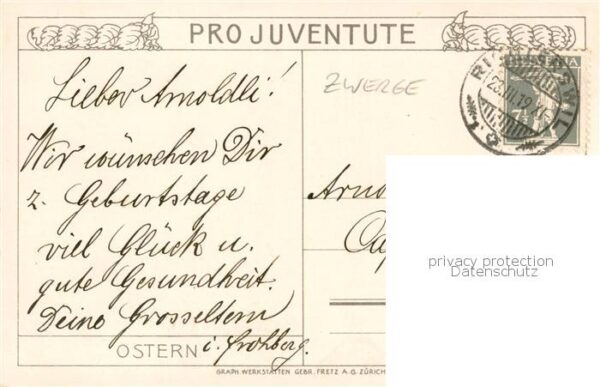 PRO JUVENTUTE
ZWERGE
Lieber Arnoldli!
Wir wünschen Dir
z. Geburtstage
viel Glück u.
gute Gesundheit.
Deine Grosseltern
i. Frohberg.
OSTERN
Arno
Cap
privacy protection
Datenschutz
GRAPH. WERKSTÄTTEN GEBR. FRETZ A. G. ZÜRICH